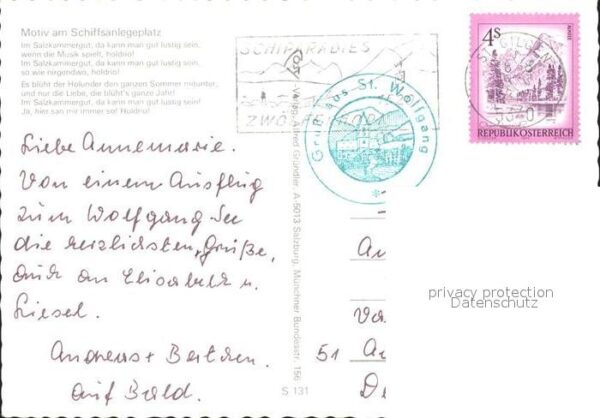 Motiv am Schiffsanlegeplatz
Im Salzkammergut, da kann man gut lustig sein,
wenn die Musik spielt, holdrio!
Im Salzkammergut, da kann man gut lustig sein,
so wie nirgendwo, holdrio!
Es blüht der Holunder den ganzen Sommer mitunter,
und nur die Liebe, die blüht's ganze Jahr!
Im Salzkammergut, da kann man gut lustig sein!
Ja, hier san mir immer so! Holdrio!
SCHIPARADIES
Gruß aus St. Wolfgang
4S
REPUBLIK ÖSTERREICH
ST. GILGEN
5340
Liebe Annemarie.
Von einem Ausflug
zum Wolfgang See
die herzlichsten Grüße,
auch an Elisabeth u.
Liesel.
Andreas + Bertchen.
Auf Bald.
Gründler, A-5013 Salzburg, Münchner Bundesstr. 156
S 131
51
privacy protection
Datenschutz